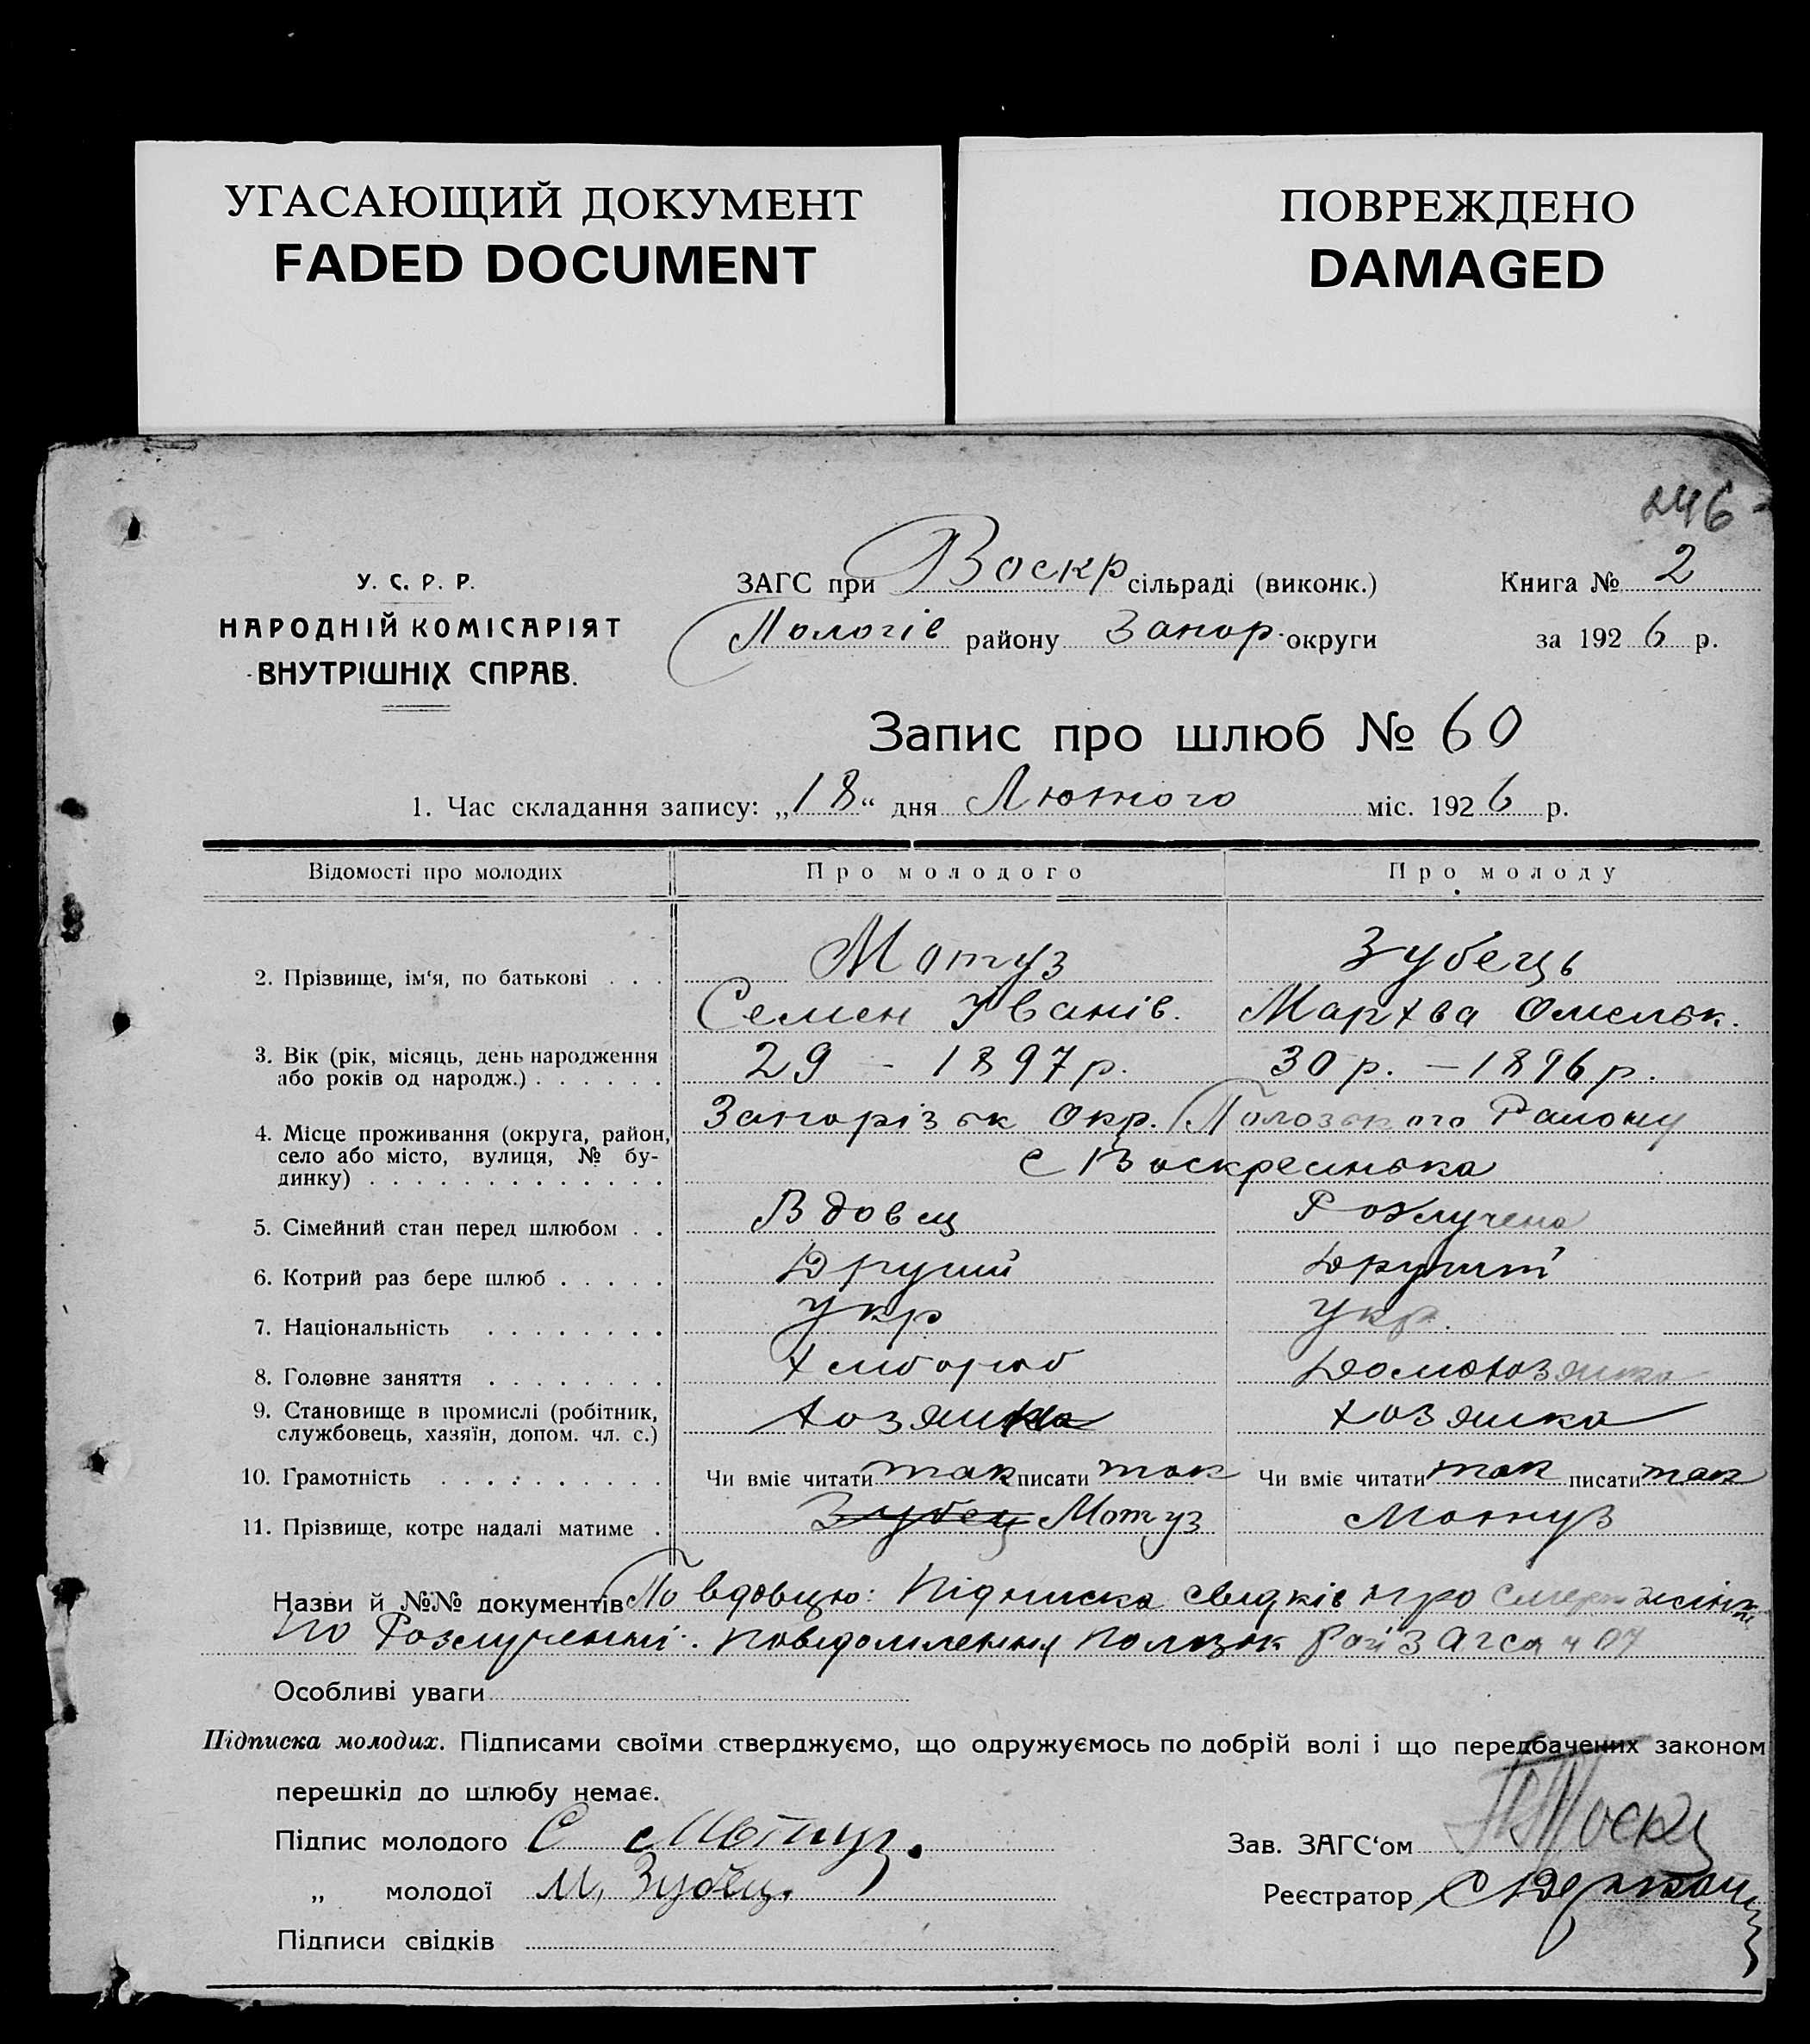 УГАСАЮЩИЙ ДОКУМЕНТ
FADED DOCUMENT
ПОВРЕЖДЕНО
DAMAGED
246
У. С. Р. Р.
НАРОДНІЙ КОМІСАРІЯТ
ВНУТРІШНІХ СПРАВ.
ЗАГС при Воскр сільраді (виконк.)
Пологів району Запор. округи
Книга № 2
за 1926 р.
Запис про шлюб № 60
1. Час складання запису: „18“ дня Лютого міс. 1926 р.
Відомості про молодих Про молодого Про молоду
2. Прізвище, ім‘я, по батькові . . . Мотуз Зубець
Семен Іванів. Мархва Омельк.
3. Вік (рік, місяць, день народження або років од народж.) . . . . . . 29 – 1897 р. 30 р. – 1896 р.
4. Місце проживання (округа, район, село або місто, вулиця, № будинку) . . . . . . . . . . . . . Запорізьк Окр. Пологського Району
с Воскресинька
5. Сімейний стан перед шлюбом . . Вдовец Розлучена
6. Котрий раз бере шлюб . . . . . Другий Другий
7. Національність . . . . . . . . Укр Укр.
8. Головне заняття . . . . . . . . Хлибороб Домохозяйка
9. Становище в промислі (робітник, службовець, хазяїн, допом. чл. с.) хозяин хозяйка
10. Грамотність . . . . . . . . . . Чи вміє читати так писати так Чи вміє читати так писати так
11. Прізвище, котре надалі матиме . Зубец Мотуз Мотуз
Назви й №№ документів По вдовцю: Підписка свидків про смерть жінки
по Розлученні: Повідомлення Полозьк Рай ЗАгса ч 07
Особливі уваги
Підписка молодих. Підписами своїми стверджуємо, що одружуємось по добрій волі і що передбачених законом
перешкід до шлюбу немає.
Підпис молодого С Мотуз.
„ молодої М. Зубец.
Підписи свідків
Зав. ЗАГС‘ом
Реєстратор